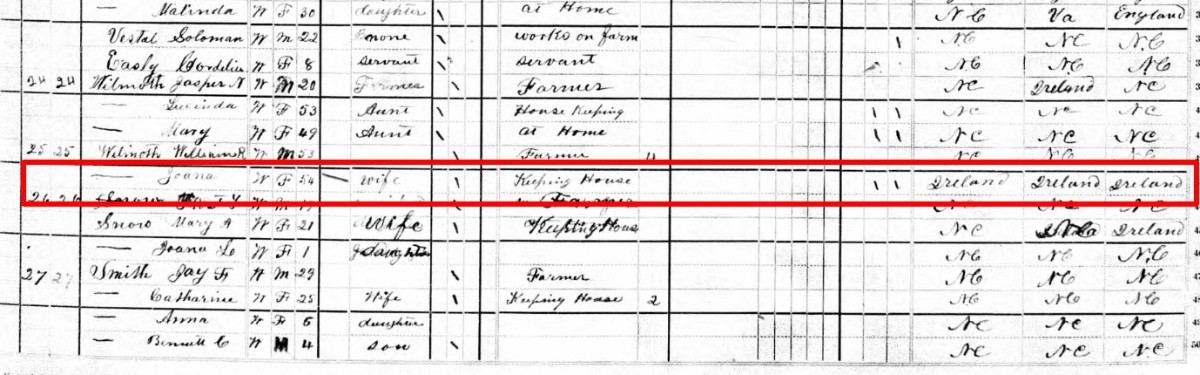 — Malinda W F 30 daughter at Home NC Va England
Vestal Soloman W M 22 none works on farm NC NC N.C
Easly Cordelia W F 8 Servant Servant NC NC NC
24 24 Wilmoth Jasper N W M 20 Farmer NC Ireland NC
— Lucinda W F 53 Aunt House Keeping NC NC NC
— Mary W F 49 Aunt at Home NC NC NC
25 25 Wilmoth William R W M 53 Farmer 4 NC NC NC
— Joana W F 54 wife Keeping House Ireland Ireland Ireland
26 26 W M Farmer NC NC NC
Snow Mary A W F 21 Wife Keeping House NC Ireland
— Joana L W F 1 daughter NC NC NC
27 27 Smith Jay F W M 29 Farmer NC NC NC
— Catharine W F 25 Wife Keeping House 2 NC NC NC
— Anna W F 6 daughter NC NC NC
— Bennett C W M 4 son NC NC NC 50